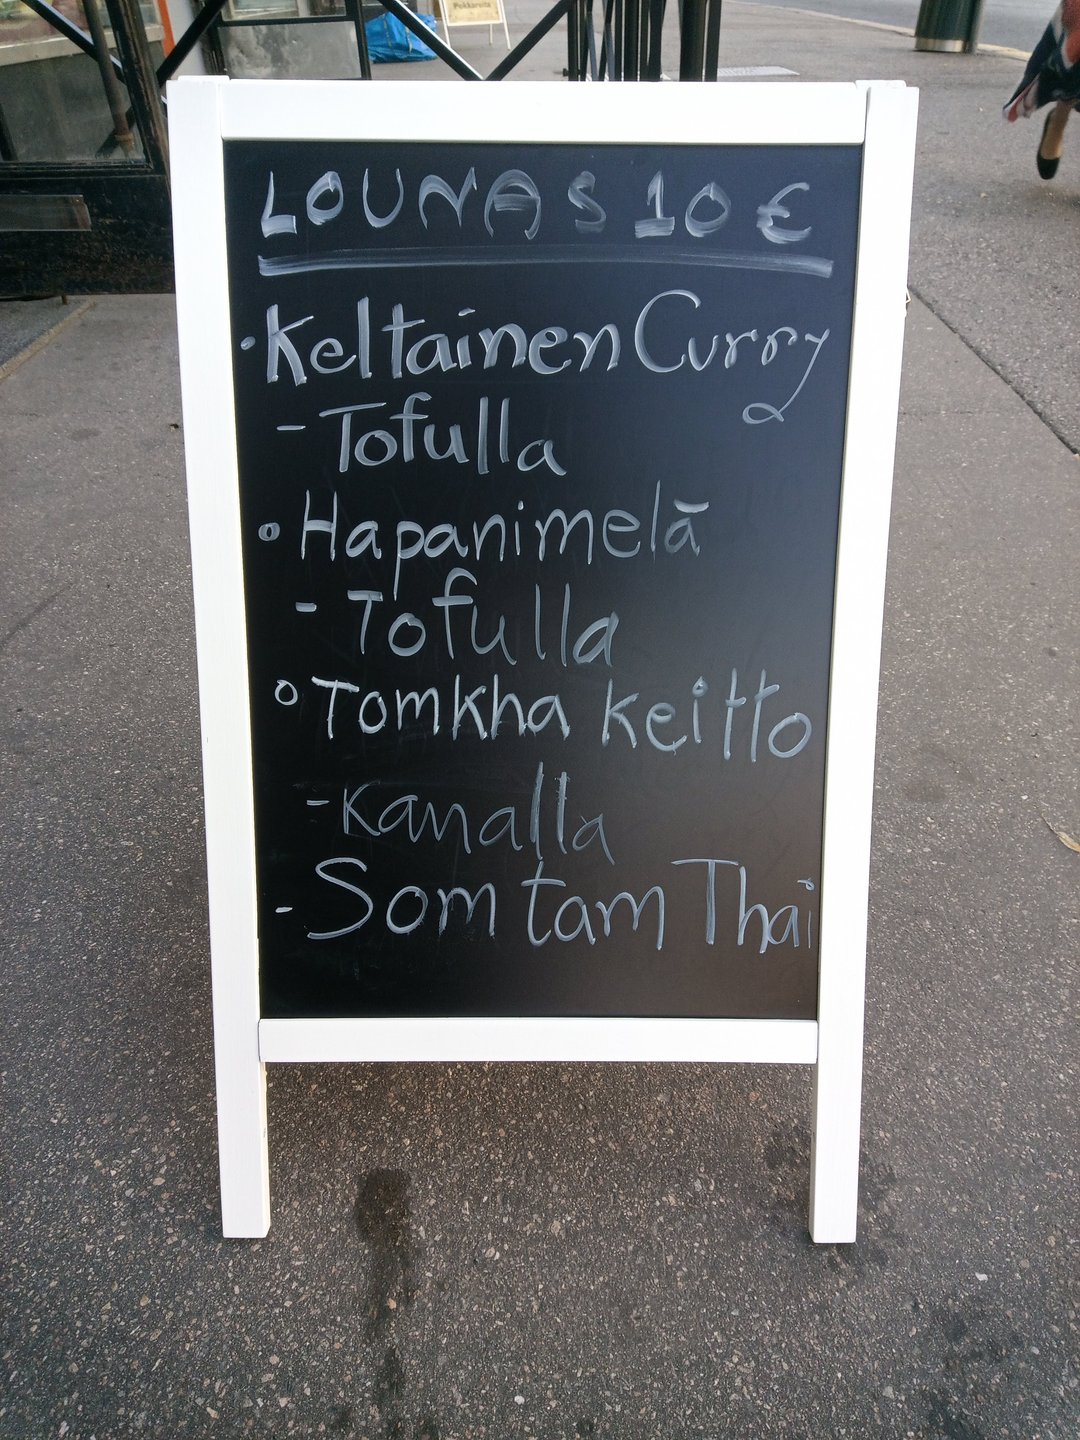 Pokkareita
LOUNAS 10 €
· Keltainen Curry
- Tofulla
o Hapanimelä
- Tofulla
o Tomkha keitto
- Kanalla
- Som tam Thai